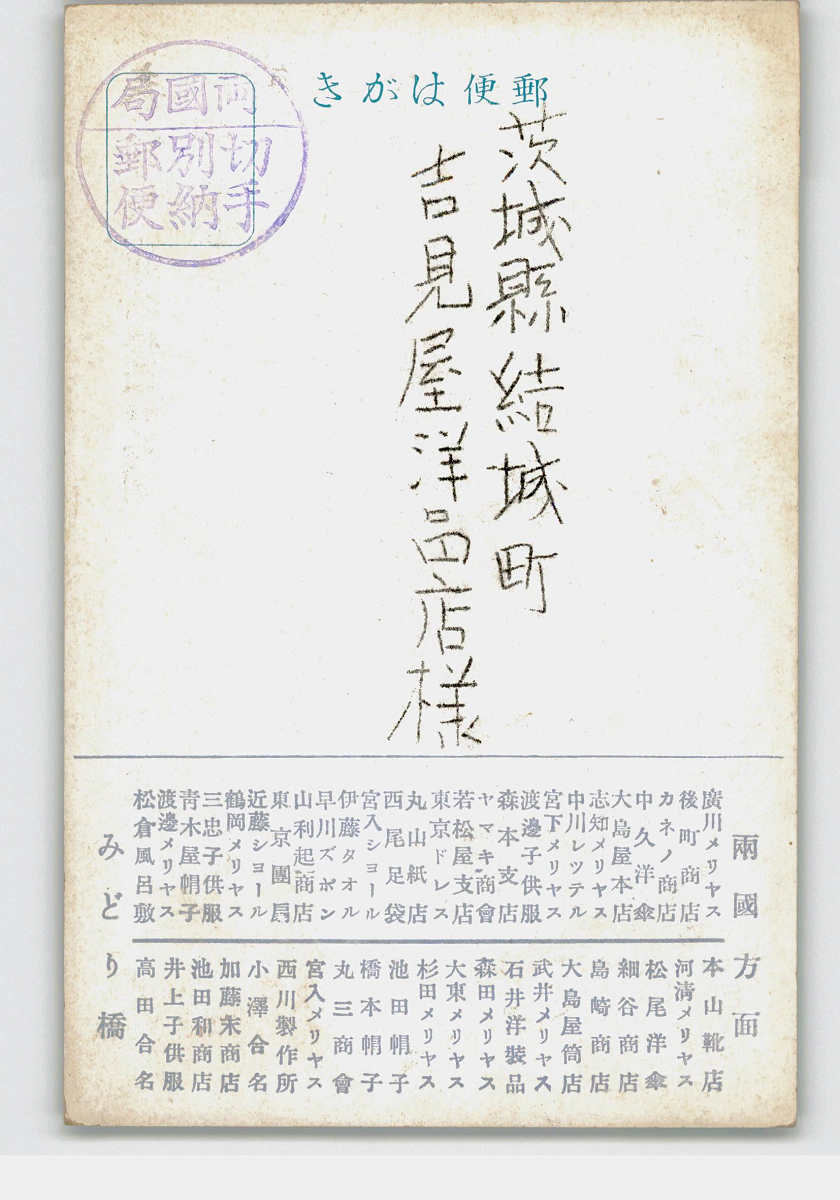 郵便はがき
両國局
切手
別納
郵便
茨城縣結城町
吉見屋洋品店様
兩國方面
廣川メリヤス
後町商店
カネノ商店
中久洋傘
大島屋本店
志知メリヤス
中川レツテル
宮下メリヤス
渡邊子供服
森本支店
ヤマキ商會
若松屋支店
東京ドレス
丸山紙店
西尾足袋
宮入ショール
伊藤タオル
早川ズボン
山利起商店
東京團扇
近藤ショール
鶴岡メリヤス
三忠子供服
青木屋帽子
渡邊メリヤス
松倉風呂敷
本山靴店
河清メリヤス
松尾洋傘
細谷商店
島崎商店
大島屋筒店
武井メリヤス
石井洋裝品
森田メリヤス
大東メリヤス
杉田メリヤス
池田帽子
橋本帽子
丸三商會
宮入メリヤス
西川製作所
小澤合名
加藤朱商店
池田和商店
井上子供服
高田合名
みどり橋